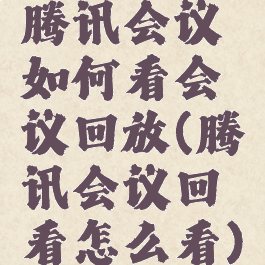 腾讯会议
如何看会
议回放(腾
讯会议回
看怎么看)